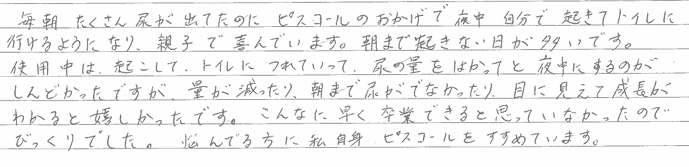 毎朝 たくさん尿が出てたのに ピスコールのおかげで夜中 自分で起きてトイレに
行けるようになり、親子で喜んでいます。朝まで起きない日が多いです。
使用中は、起こして、トイレにつれていって、尿の量をはかってと夜中にするのが
しんどかったですが、量が減ったり、朝まで尿がでなかったり、目に見えて成長が
わかると嬉しかったです。こんなに早く卒業できると思っていなかったので
びっくりでした。 悩んでる方に私自身 ピスコールをすすめています。